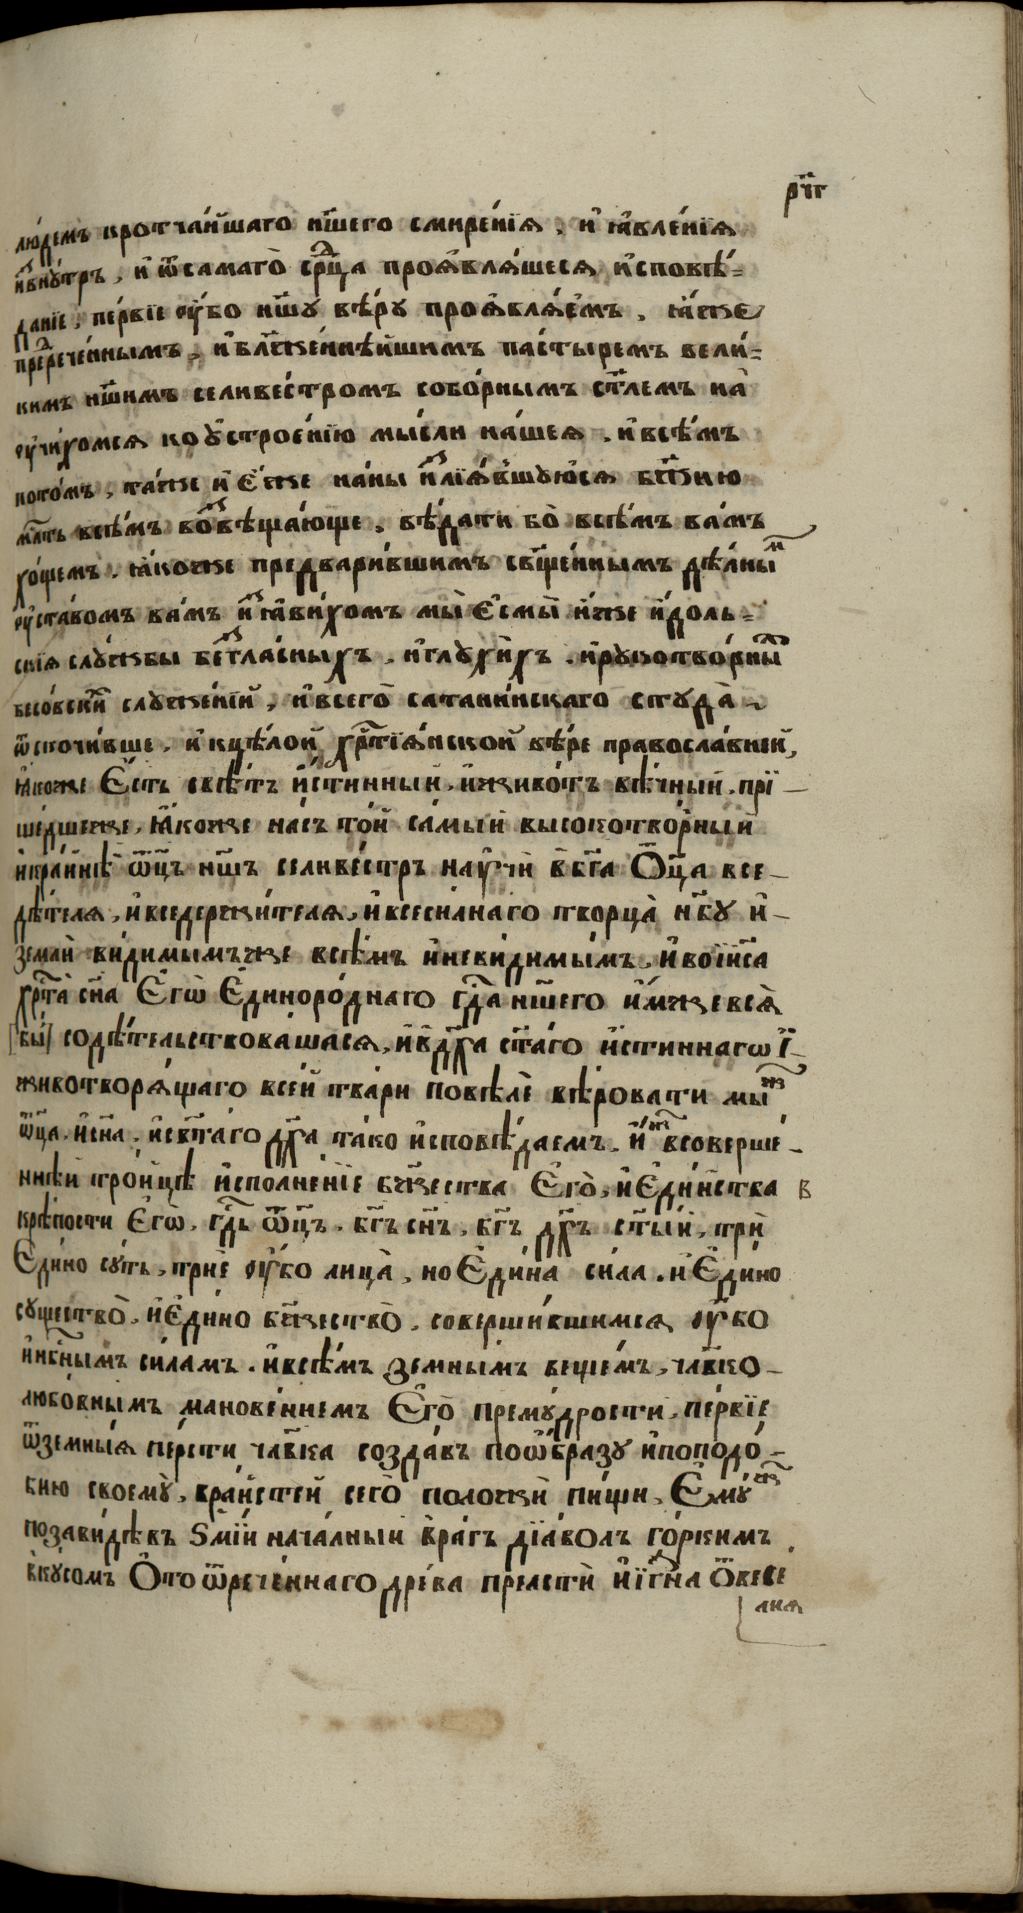 рч҃г
лю́демъ кротча́йшаго нш҃его смире́нїѧ, и҆ ꙗ҆вле́нїѧ
и҆вну́трь, и҆ ѿсамагѡ̀ ср҃дца проѧ҆влѧ́шесѧ и҆сповѣ́=
данїе, пе́рвїе ᲂу҆́бо нш҃у вѣ́ру проѧ҆влѧ́емъ, ꙗ҆́же
пре́дрече́ннымъ, и҆бл҃же́ннѣ́йшимъ па́стыремъ вели́=
кимъ нш҃имъ селиве́стромъ собо́рнымъ ст҃лемъ на
ᲂу҆чи́хомсѧ коу҆строе́нїю мы́сли на́шеѧ, и҆всѣ́мъ
пото́мъ, та́же и҆ є҆́же на́ны и҆злїѧ́вшуюсѧ бж҃ию
млⷭ҇ть всѣ́мъ возвѣща́юще, вѣ́дати бо̀ всѣ́мъ ва́мъ
хо́щемъ, ꙗ҆́коже предвари́вшимъ сщ҃е́ннымъ дѣ́лнымъ
ᲂу҆ста́вомъ ва́мъ и҆зꙗ҆ви́хомъ мы̀ є҆смы̀ и҆́же и҆́доль=
скїѧ слу́жбы безгла́сныхъ, и҆глухи́хъ, и҆рукотво́рныⷯ
бесо́вскиⷯ служе́нїй, и҆всего̀ сатани́нскаго студа̀
ѿскочи́вше, и҆ кцѣ́лой хрⷭ҇тїѧ́нской вѣ́ре правосла́вней,
ꙗ҆́коже Є҆сть свѣ́тъ и҆́стинный, и҆живо́тъ вѣ́чный, прї–
ше́дшеже, Ꙗ҆́коже насъ то́й са́мый высокотво́рный
и҆кра́йнѣ ѿц҃ъ нш҃ъ селиве́стръ наᲂу҆чѝ вбг҃а Ѻ҆ц҃а все–
дѣ́телѧ, и҆вседержи́телѧ, и҆всеси́лнаго творца̀ нб҃у и҆–
землѝ ви́димымъже всѣ́мъ и҆неви́димымъ, и҆воїи҃са
хрⷭ҇та̀ сн҃а Є҆гѡ̀ Є҆диноро́днаго гдⷭ҇а нш҃его и҆́мже всѧ̀
[бы] содѣ́тельствова́шасѧ, и҆вдх҃а ст҃а́го и҆́стиннагѡ І҆–
животворѧ́щаго все́й тва́ри повѣлѐ вѣ́ровати мы́ж
ѿц҃а, и҆сн҃а, и҆свт҃а́го дх҃а та́ко и҆сповѣ́даемъ, и҆́ж всоверше́–
ннѣй трои́цѣ и҆сполне́нїе бж҃ества Є҆го̀, и҆Є҆ди́нства в
крѣ́пости Є҆гѡ̀, гдⷭ҇ь Ѿц҃ъ, бг҃ъ сн҃ъ, бг҃ъ дх҃ъ ст҃ы́й, трѝ
Є҆ди́но суть, трїѐ ᲂу҆́бо лица̀, но Є҆ди́на си́ла, и҆ Є҆ди́но
существо̀, и҆Є҆ди́но бж҃ество̀, соверши́вшимсѧ ᲂу҆́бо
и҆нбⷭ҇нымъ си́ламъ, и҆всѣ́мъ земны́мъ веще́мъ, чл҃вко–
любо́внымъ манове́ннемъ Є҆го̀ прему́дрости, пе́рвїе
ѿземны́ѧ пе́рсти чл҃вка созда́въ поѡ҆́бразу и҆поподо́–
бию своему̀, вра́йстей сего̀ положѝ пи́щи, Є҆му́ж
позави́дѣвъ Ѕмі́й нача́лный вра́гъ дїа́волъ го́рким
вку́сомъ Ѻ҆то ѿрече́ннаго дре́ва прелестѝ и҆їзгна Ѿвесе
лиѧ